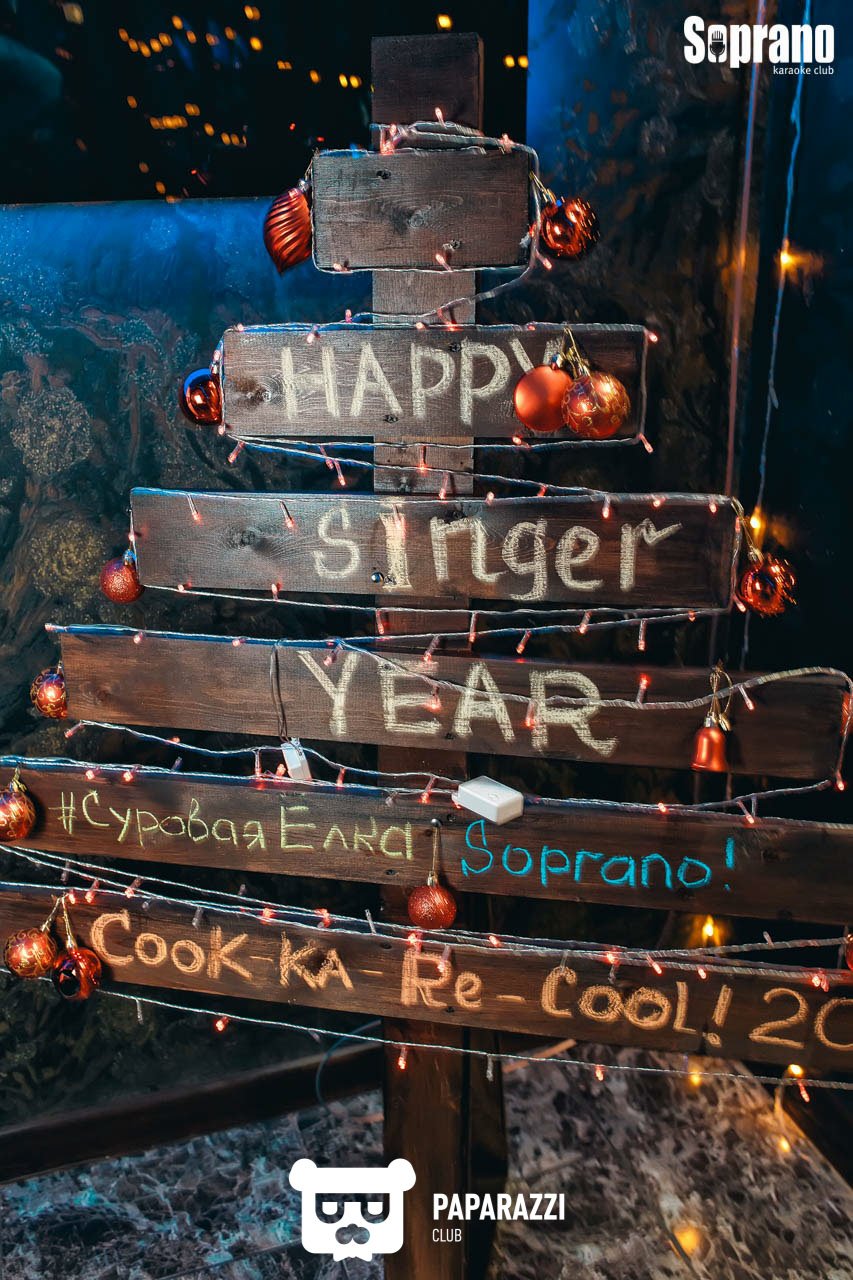 Soprano
karaoke club
HAPPY
SInger
YEAR
#Суровая Елка Soprano!
Cook-Ka-Re-CooL! 20
PAPARAZZI
CLUB